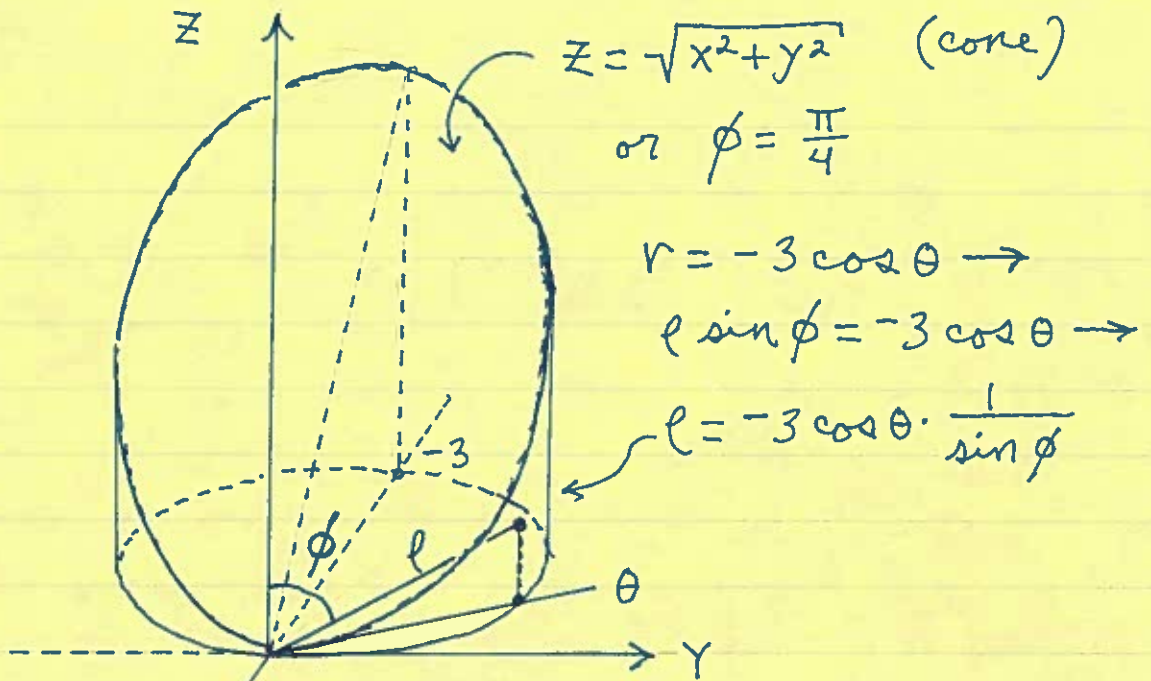 Z
z = √x² + y² (cone)
or ϕ = π/4
r = -3 cos θ →
ρ sin ϕ = -3 cos θ →
ρ = -3 cos θ · 1/sin ϕ
-3
ϕ
ρ
θ
Y